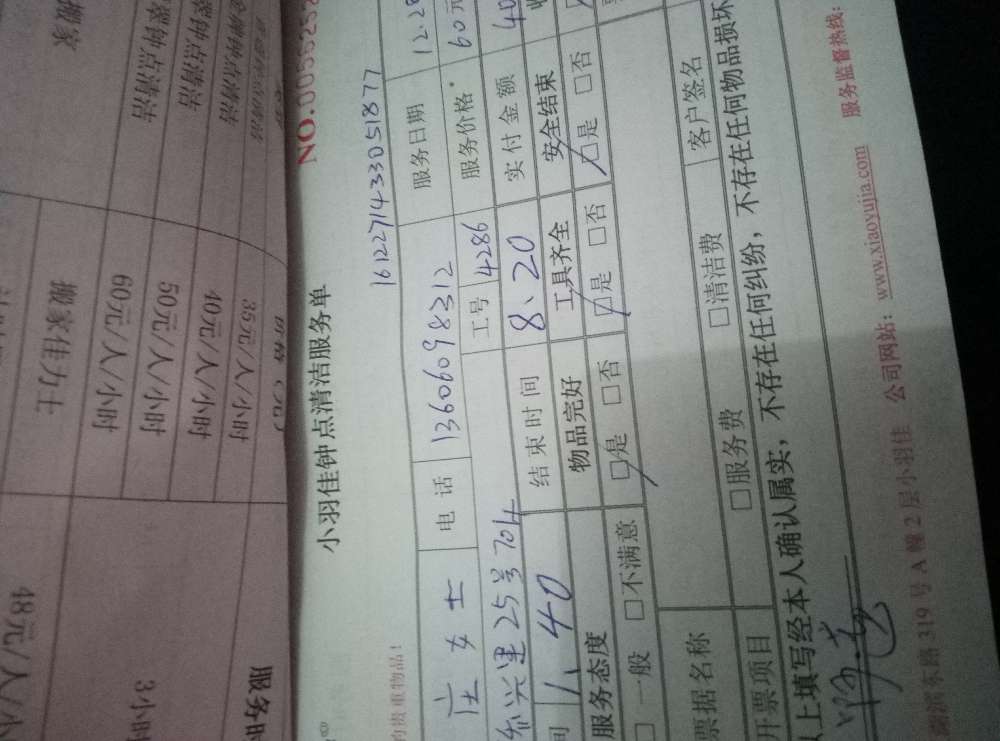 小羽佳钟点清洁服务单
NO.
1612271433051877
的贵重物品！
庄女士 电话 13606098312 服务日期 12.28
兴里25号704 工号 4286 服务价格 60元
间 1、40 结束时间 8、20 实付金额 40
服务态度 物品完好 工具齐全 安全结束
□一般 □不满意 □是 □否 □是 □否 □是 □否
票据名称 客户签名
开票项目 □服务费 □清洁费
以上填写经本人确认属实，不存在任何纠纷，不存在任何物品损坏
湖滨东路319号A幢2层小羽佳 公司网站：www.xiaoyujia.com 服务监督热线：
搬家
钟点清洁
钟点清洁
钟点清洁
搬家佳力士
60元/人/小时
50元/人/小时
40元/人/小时
35元/人/小时
价格（元）
48元/人/小
3小时
服务时